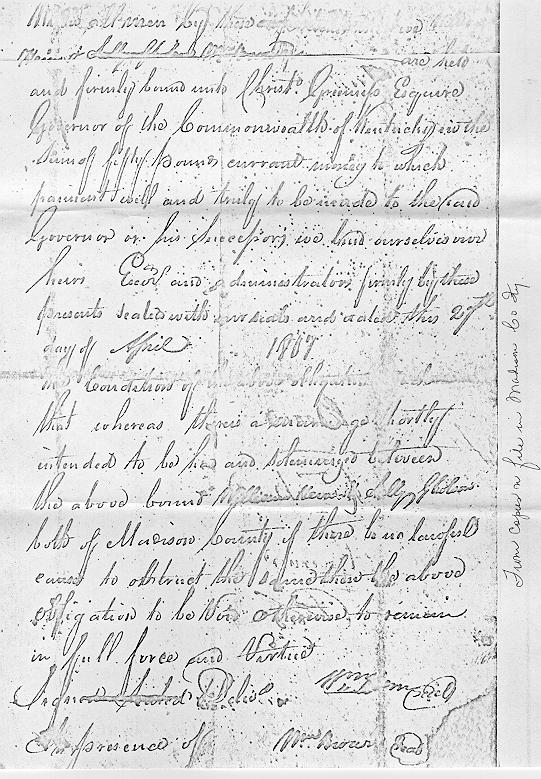 Know all men by these presents that we
are held
and firmly bound unto Christo Greenup Esquire
Governor of the Commonwealth of Kentucky in the
Sum of fifty pounds currant money to which
paiment well and truly to be made to the said
Governor or his Successors we bind ourselves our
heirs Exers and administrators firmly by these
presents sealed with our seals and dated this 27th
day of April 1807
The Condition of the above obligation is
that whereas there is a marriage shortly
intended to be had and solemnized between
the above bound William & Sally
both of Madison County if there be no lawfull
cause to obstruct the same then the above
obligation to be Void otherwise to remain
in full force and Virtue
Signed Sealed & Deliv
Wm Seal
In presence of
Wm Seal
From Copies on file in Madison Co Ky.